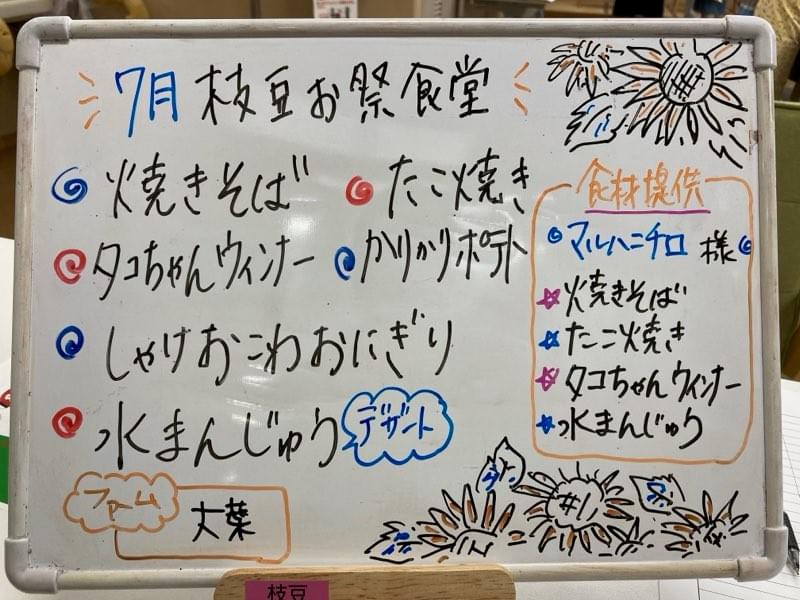 7月 枝豆お祭食堂
焼きそば
たこ焼き
タコちゃんウィンナー
かりかりポテト
しゃけおこわおにぎり
水まんじゅう
デザート
ファーム
大葉
食材提供
マルハニチロ 様
焼きそば
たこ焼き
タコちゃんウィンナー
水まんじゅう
枝豆